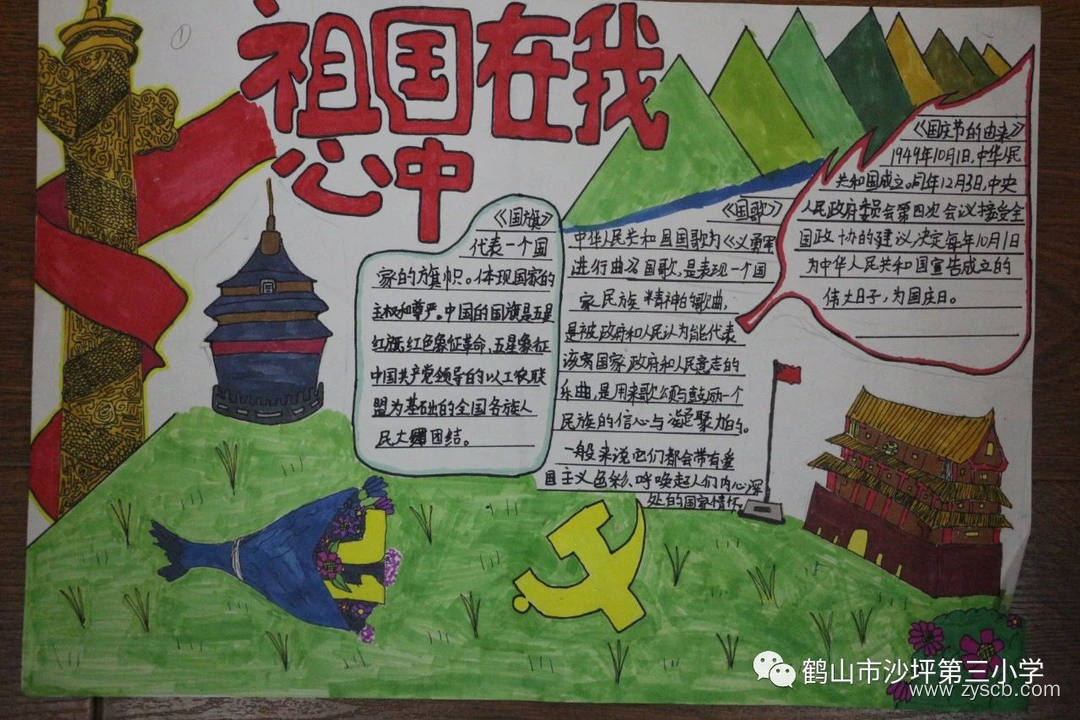 ①
祖国在我
心中
《国旗》
代表一个国
家的旗帜。体现国家的
主权和尊严。中国的国旗是五星
红旗,红色象征革命,五星象征
中国共产党领导的以工农联
盟为基础的全国各族人
民大团结。
《国歌》
中华人民共和国国歌为《义勇军
进行曲》国歌,是表现一个国
家民族精神的歌曲,
是被政府和人民认为能代表
该国家政府和人民意志的
乐曲,是用来歌颂与鼓励一个
民族的信心与凝聚力的。
一般来说它们都会带有爱
国主义色彩、呼唤起人们内心深
处的国家情怀
《国庆节的由来》
1949年10月1日,中华人民
共和国成立。同年12月3日,中央
人民政府委员会第四次会议接受全
国政协的建议,决定每年10月1日
为中华人民共和国宣告成立的
伟大日子,为国庆日。
鹤山市沙坪第三小学
www.zyscb.com